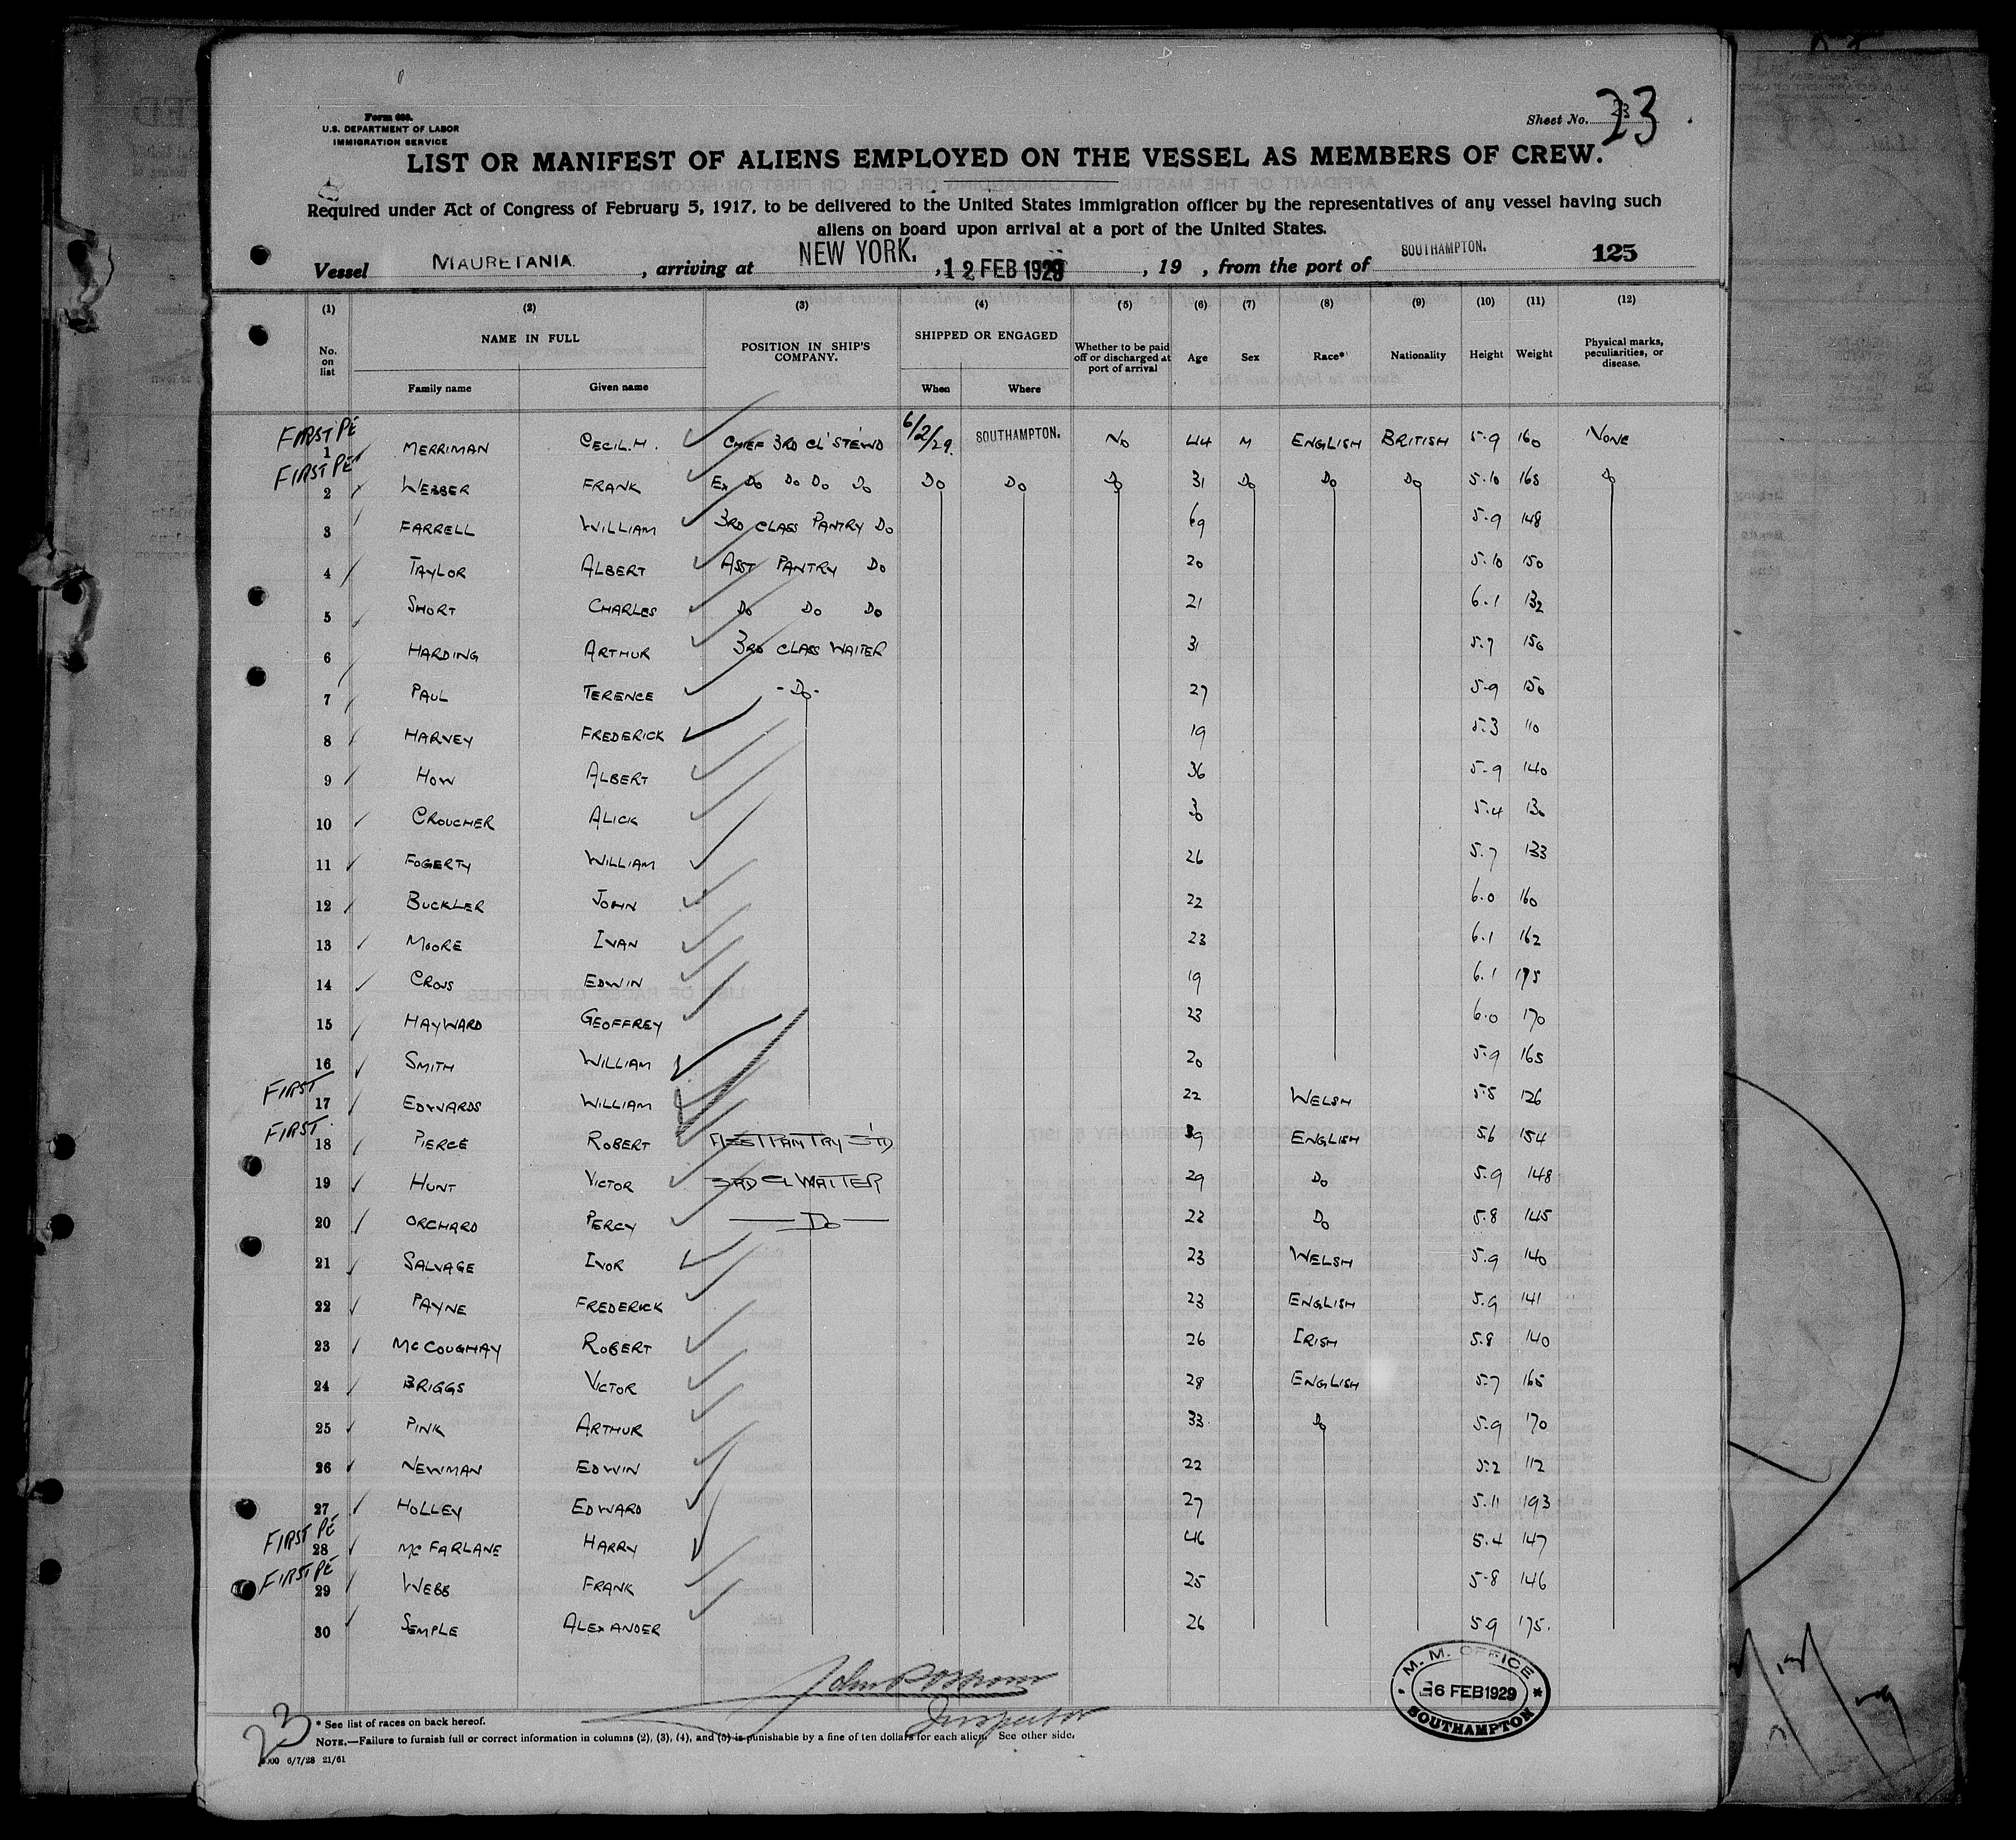 Sheet No. 23
23
Form 680.
U.S. DEPARTMENT OF LABOR
IMMIGRATION SERVICE
LIST OR MANIFEST OF ALIENS EMPLOYED ON THE VESSEL AS MEMBERS OF CREW.
Required under Act of Congress of February 5, 1917, to be delivered to the United States immigration officer by the representatives of any vessel having such
aliens on board upon arrival at a port of the United States.
Vessel MAURETANIA, arriving at NEW YORK., 12 FEB 1929, 19 , from the port of SOUTHAMPTON. 125
(1) (2) (3) (4) (5) (6) (7) (8) (9) (10) (11) (12)
No. on list NAME IN FULL Family name Given name POSITION IN SHIP'S COMPANY. SHIPPED OR ENGAGED When Where Whether to be paid off or discharged at port of arrival Age Sex Race* Nationality Height Weight Physical marks, peculiarities, or disease.
FIRST PE 1 MERRIMAN CECIL.H. CHIEF 3RD CL' STEWD 6/2/29. SOUTHAMPTON. NO 44 M ENGLISH BRITISH 5-9 160 NONE
FIRST PE 2 WEBBER FRANK Ex Do Do Do Do Do Do Do 31 Do Do Do 5-10 165 Do
3 FARRELL WILLIAM 3RD CLASS PANTRY Do 69 5-9 148
4 TAYLOR ALBERT ASST PANTRY Do 20 5.10 150
5 SHORT CHARLES Do Do Do 21 6.1 132
6 HARDING ARTHUR 3RD CLASS WAITER 31 5.7 150
7 PAUL TERENCE -Do- 27 5-9 150
8 HARVEY FREDERICK 19 5.3 110
9 HOW ALBERT 36 5-9 140
10 CROUCHER ALICK 30 5.4 130
11 FOGERTY WILLIAM 26 5.7 133
12 BUCKLER JOHN 22 6.0 160
13 MOORE IVAN 23 6.1 162
14 CROSS EDWIN 19 6.1 175
15 HAYWARD GEOFFREY 23 6.0 170
16 SMITH WILLIAM 20 5.9 165
FIRST 17 EDWARDS WILLIAM 22 WELSH 5.5 126
FIRST. 18 PIERCE ROBERT ASST PANTRY S'TD 39 ENGLISH 5.6 154
19 HUNT VICTOR 3RD CL WAITER 29 Do 5.9 148
20 ORCHARD PERCY Do 22 Do 5.8 145
21 SALVAGE IVOR 23 WELSH 5.9 140
22 PAYNE FREDERICK 23 ENGLISH 5.9 141
23 MCCOUGHAY ROBERT 26 IRISH 5.8 140
24 BRIGGS VICTOR 28 ENGLISH 5.7 165
25 PINK ARTHUR 33 Do 5.9 170
26 NEWMAN EDWIN 22 5.2 112
27 HOLLEY EDWARD 27 5.11 193
FIRST PE 28 MCFARLANE HARRY 46 5.4 147
FIRST PE 29 WEBB FRANK 25 5-8 146
30 SEMPLE ALEXANDER 26 5.9 175.
Inspector
M. M. OFFICE
6 FEB 1929
SOUTHAMPTON
23
* See list of races on back hereof.
NOTE.—Failure to furnish full or correct information in columns (2), (3), (4), and (5) is punishable by a fine of ten dollars for each alien. See other side.
6/7/28 21/61